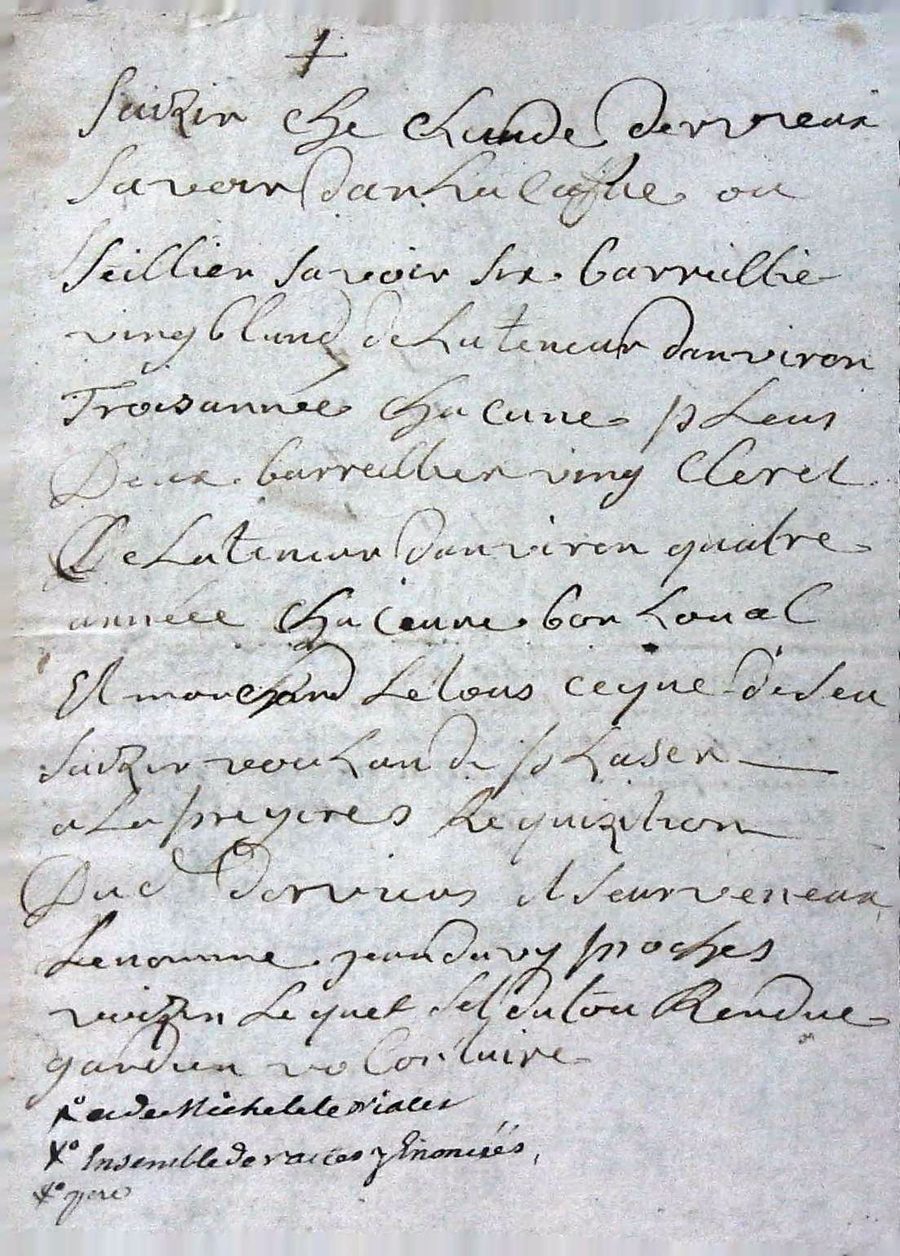 Saizir che Claude dervieux
Savoir dan La Cafue ou
Seillier savoir six barrullie
ving bland de La teneur danviron
Trois année chacune pleus
Deux barrullier ving Cleret
De La teneur danviron quatre
année chacune bon Loual
Et marchand Le tous ce que deseu
Saizir voulan de pLaser
a La preyeres Requizition
Du d dervieus et seurveneux
Le nomme jean davy proches
voizin Le quel sest du tou Rendue
gardien volontaire
Xo et de Michel
Xo Ensemble de vaces y Enoncées,
Xo